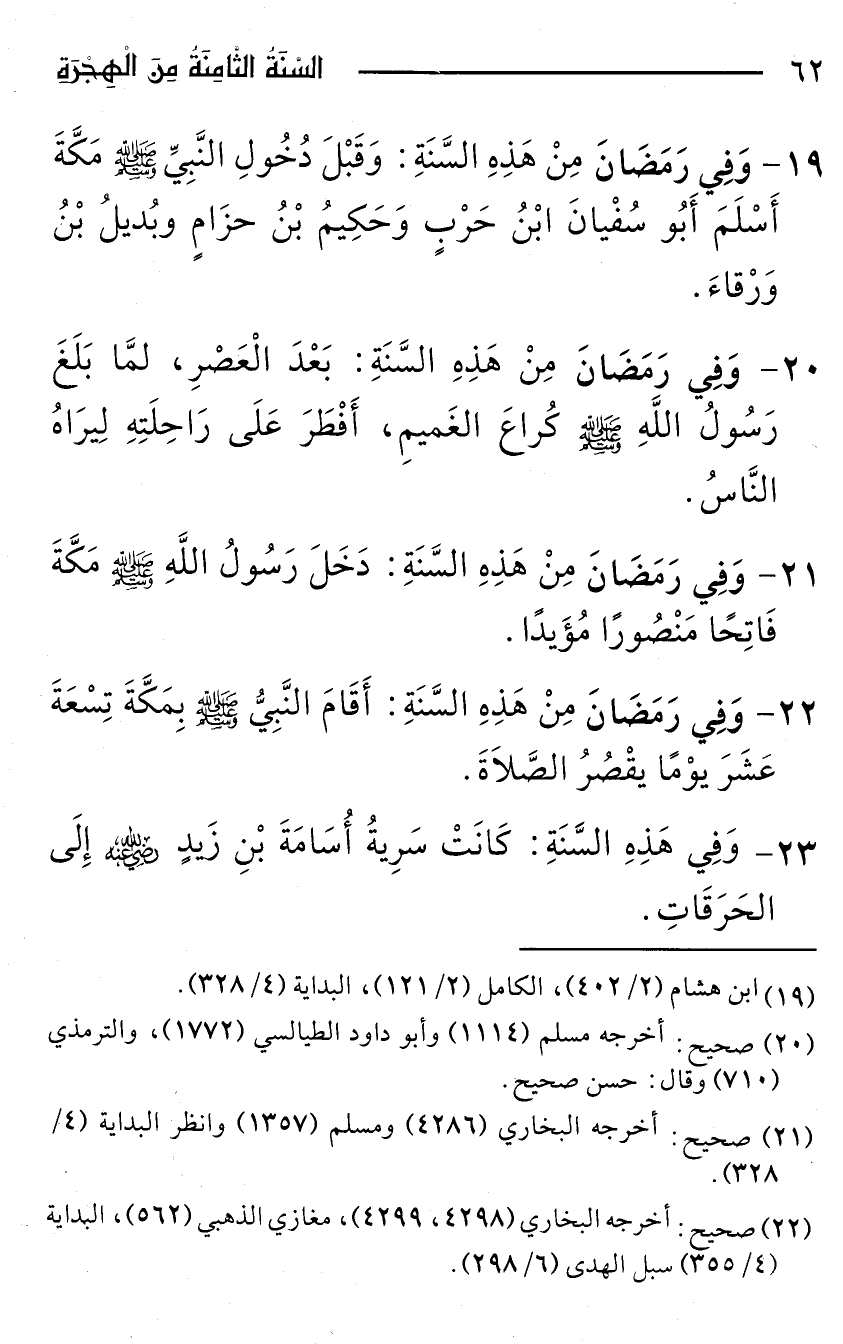 ٦٢ السَّنَةُ الثَّامِنَةُ مِنَ الْهِجْرَةِ
١٩- وَفِي رَمَضَانَ مِنْ هَذِهِ السَّنَةِ: وَقَبْلَ دُخُولِ النَّبِيِّ ﷺ مَكَّةَ
أَسْلَمَ أَبُو سُفْيانَ ابْنُ حَرْبٍ وَحَكِيمُ بْنُ حزَامٍ وبُديلُ بْنُ
وَرْقاءَ.
٢٠- وَفِي رَمَضَانَ مِنْ هَذِهِ السَّنَةِ: بَعْدَ الْعَصْرِ، لمَّا بَلَغَ
رَسُولُ اللَّهِ ﷺ كُراعَ الغَميمِ، أَفْطَرَ عَلَى رَاحِلَتِهِ لِيرَاهُ
النَّاسُ.
٢١- وَفِي رَمَضَانَ مِنْ هَذِهِ السَّنَةِ: دَخَلَ رَسُولُ اللَّهِ ﷺ مَكَّةَ
فَاتِحًا مَنْصُورًا مُؤَيدًا.
٢٢- وَفِي رَمَضَانَ مِنْ هَذِهِ السَّنَةِ: أَقَامَ النَّبِيُّ ﷺ بِمَكَّةَ تِسْعَةَ
عَشَرَ يوْمًا يقْصُرُ الصَّلاَةَ.
٢٣- وَفِي هَذِهِ السَّنَةِ: كَانَتْ سَرِيةُ أُسَامَةَ بْنِ زَيدٍ رضي الله عنه إِلَى
الحَرَقَاتِ.
(١٩) ابن هشام (٢/ ٤٠٢)، الكامل (٢/ ١٢١)، البداية (٤/ ٣٢٨).
(٢٠) صحيح: أخرجه مسلم (١١١٤) وأبو داود الطيالسي (١٧٧٢)، والترمذي
(٧١٠) وقال: حسن صحيح.
(٢١) صحيح: أخرجه البخاري (٤٢٨٦) ومسلم (١٣٥٧) وانظر البداية (٤/
٣٢٨).
(٢٢) صحيح: أخرجه البخاري (٤٢٩٨، ٤٢٩٩)، مغازي الذهبي (٥٦٢)، البداية
(٤/ ٣٥٥) سبل الهدى (٦/ ٢٩٨).